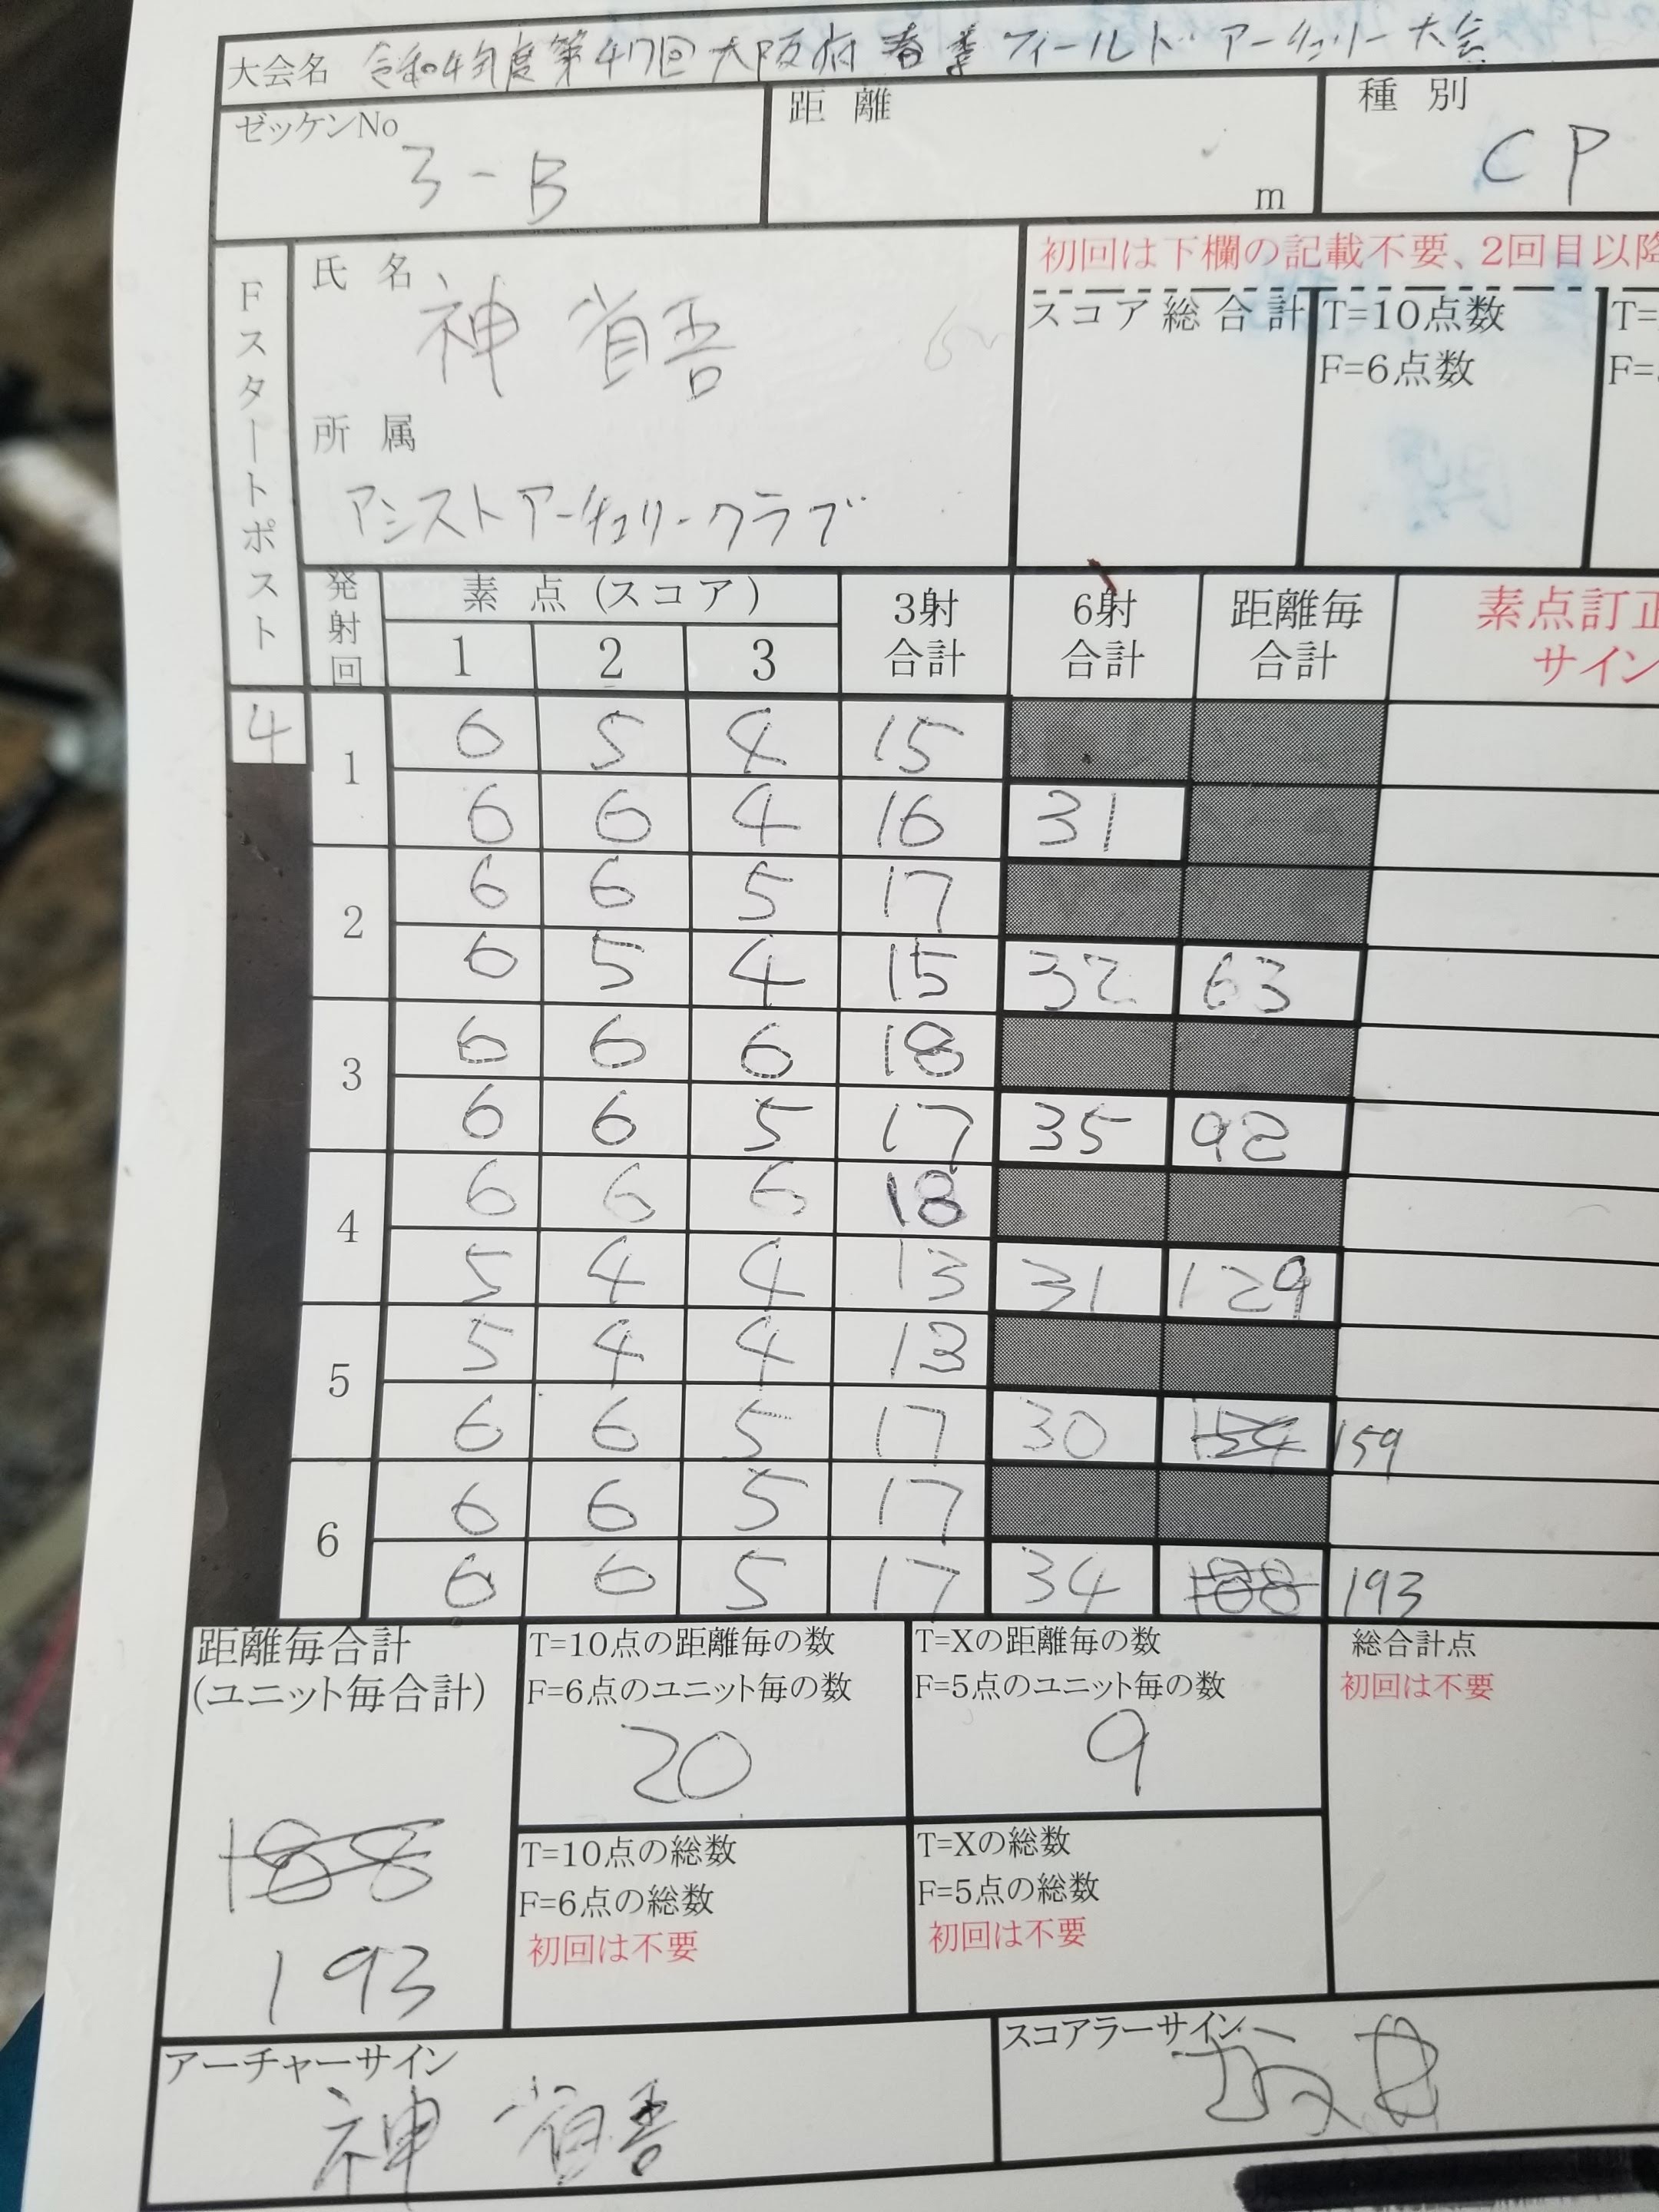 大会名 令和4年度第47回大阪府春季フィールドアーチェリー大会
ゼッケンNo 距離 種別
3-B m CP
氏名 神 省吾
初回は下欄の記載不要、2回目以降
スコア総合計 T=10点数 T=
F=6点数 F=
所属
アシストアーチェリークラブ
Fスタートポスト
発射回 素点(スコア) 3射合計 6射合計 距離毎合計 素点訂正
サイン
1 2 3
4
1 6 5 4 15
6 6 4 16 31
2 6 6 5 17
6 5 4 15 32 63
3 6 6 6 18
6 6 5 17 35 98
4 6 6 6 18
5 4 4 13 31 129
5 5 4 4 13
6 6 5 17 30 154 159
6 6 6 5 17
6 6 5 17 34 188 193
距離毎合計 T=10点の距離毎の数 T=Xの距離毎の数 総合計点
(ユニット毎合計) F=6点のユニット毎の数 F=5点のユニット毎の数 初回は不要
20 9
188 T=10点の総数 T=Xの総数
F=6点の総数 F=5点の総数
初回は不要 初回は不要
193
アーチャーサイン スコアラーサイン
神 省吾